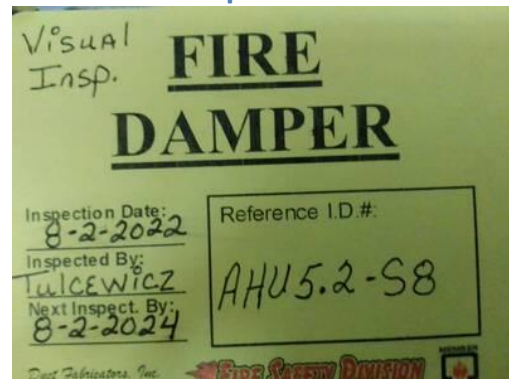 Visual
Insp.
FIRE
DAMPER
Inspection Date:
8-2-2022
Inspected By:
Tulcewicz
Next Inspect. By:
8-2-2024
Reference I.D.#:
AHU5.2-S8
Duct Fabricators, Inc.
FIRE SAFETY DIVISION
MEMBER